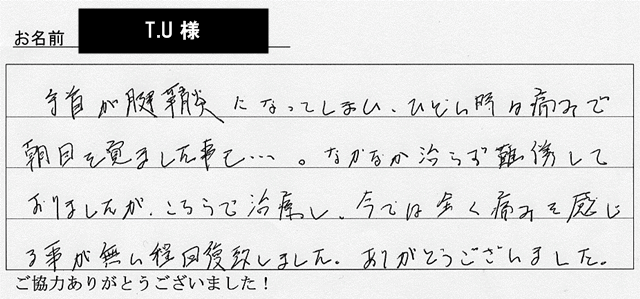 お名前 T.U 様
手首が腱鞘炎になってしまい、ひどい時は痛みで
朝目を覚ました事も…。なかなか治らず難儀して
おりましたが、こちらで治療し、今では全く痛みを感じ
る事が無い程回復致しました。ありがとうございました。
ご協力ありがとうございました！